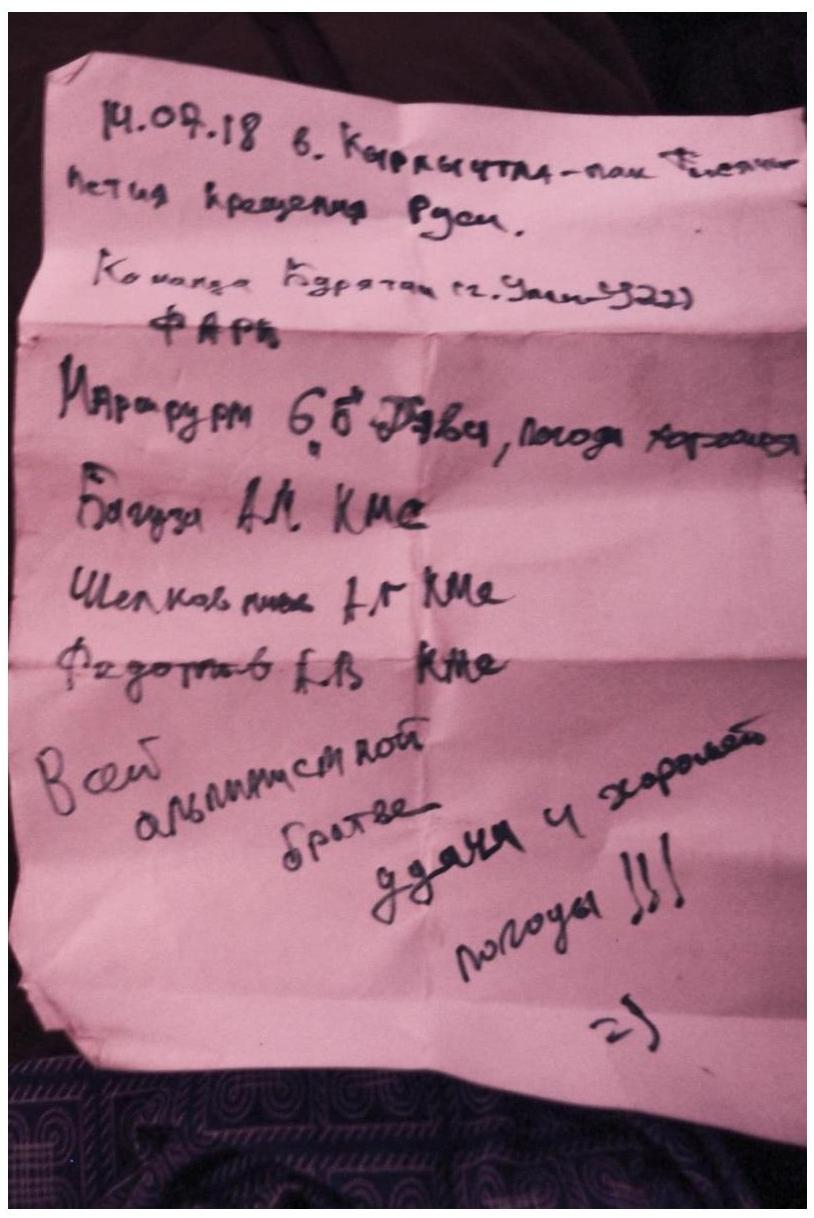 14.07.18 в. Кыркычтла-пак Тысяче
летия Крещения Руси.
Команда Бурятии (г. Улан-Удэ)
ФАРБ
Маршрут 6Б Пявы, погода хорошая
Багуза А.М. КМС
Шелков А.Г КМС
Федотов А.В КМС
Всей
альпинисткой
братве
удачи и хорошей
погоды !!!
=)